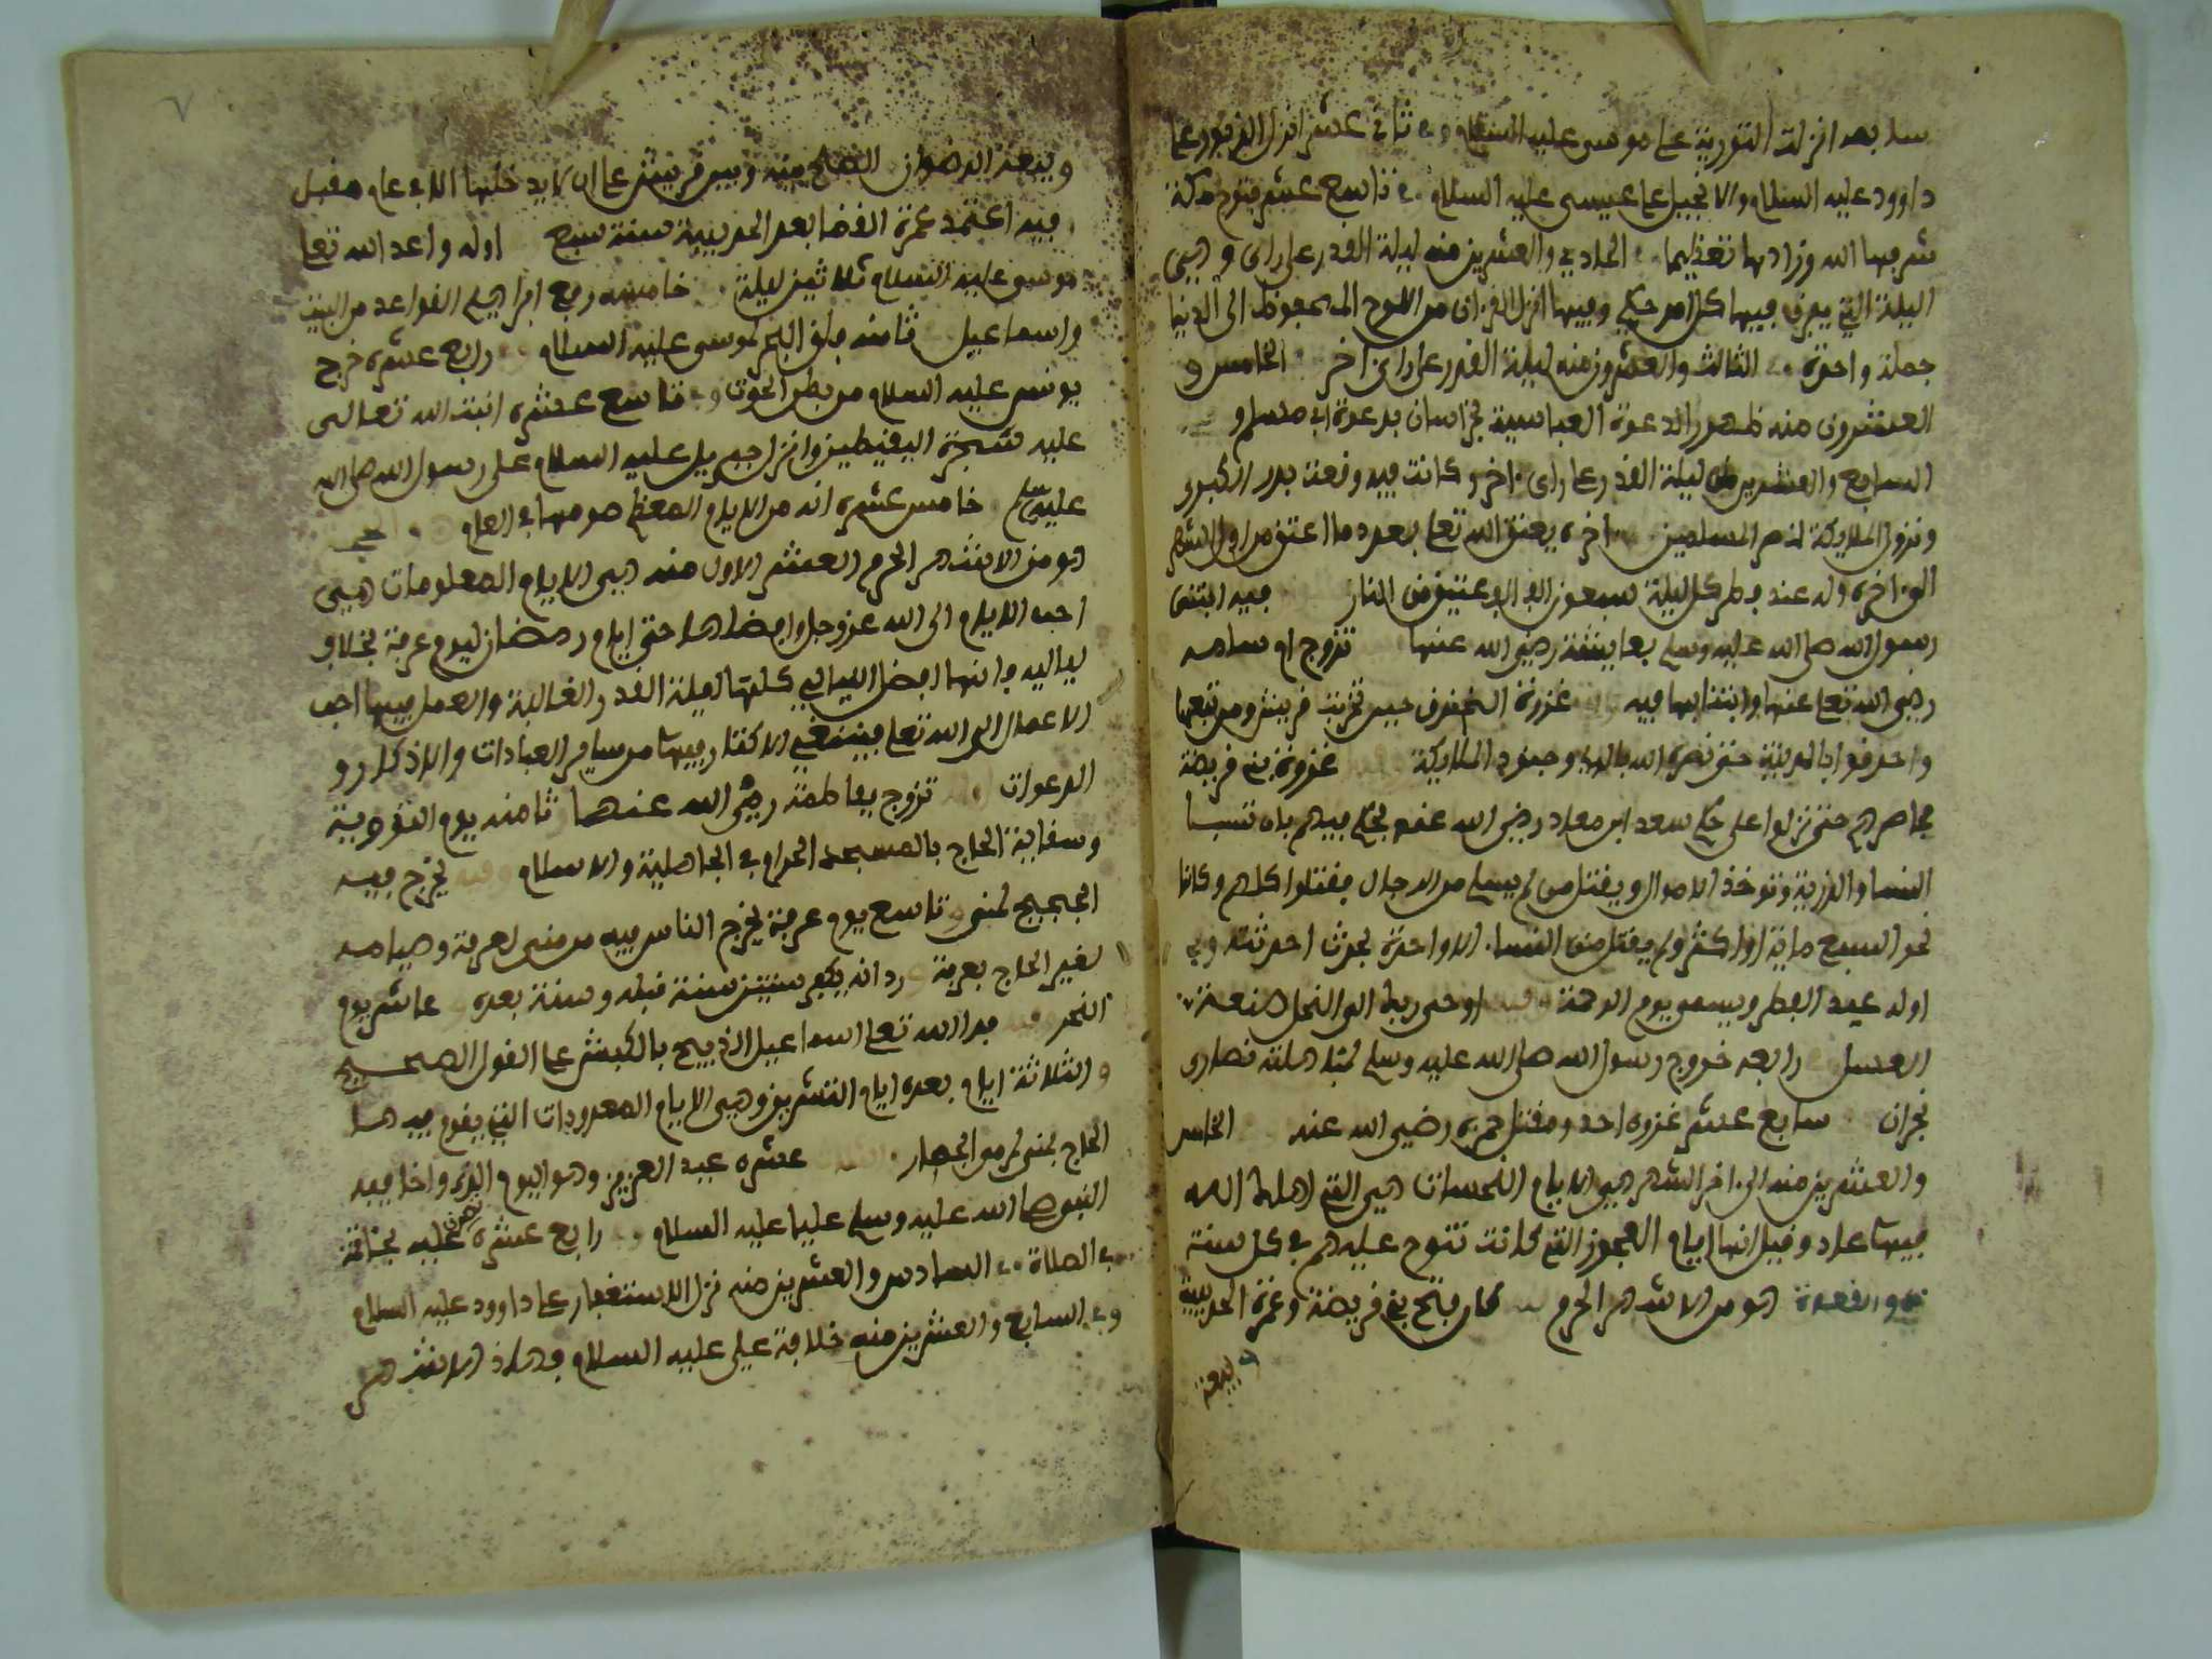 سابعه انزلت التورية على موسى عليه السلام وفي ثاني عشر انزل الزبور على
داوود عليه السلام والانجيل على عيسى عليه السلام وفي تاسع عشر فتوح مكة
شرفها الله وزادها تعظيما وفي الحادي والعشرين منه ليلة القدر على راى وهي
اليلة التي يفرق فيها كل امر حكيم وفيها انزل القران من اللوح المحفوظ الى الدنيا
جملة واحدة وفي الثالث والعشرون منه ليلة القدر على راى اخر الخامس و
العشرون منه ظهور الدعوة العباسية بخراسان بدعوة ابي مسلم و
السابع والعشرين ليلة القدر على راى اخر وكانت فيه وقعت بدر الكبرى
ونزول الملايكة لنصر المسلمين اخره يعتق الله تعلى بعدد ما اعتق من اول الشهر
الى اخره وله عند فطر كل ليلة سبعون الف الف عتيق من النار فيه ابتنى
رسول الله صلى الله عليه وسلم بعايشة رضي الله عنها تزوج ام سلمه
رضى الله تعلى عنها وابتنا بها فيه غزوة الخندق حين تحزبت قريش ومن تبعها
واحدقوا بالمدينة حتى نصره الله بالريح وجنود الملايكة غزوة بني قريضة
فحاصرهم حتى نزلوا على حكم سعد ابن معاد رضي الله عنه فحكم فيهم بان تسبا
النسا والذرية وتوخذ الاموال ويقتل من لم يسلم من الرجال فقتلوا كلهم وكانوا
نحو السبع ماية او اكثر ولم يقتل من النسا الا واحدة لحدث احدثته وفي
اوله عيد الفطر ويسمى يوم الرحمة فيه اوحى ربك الى النحل صنعة
العسل رابعه خروج رسول الله صلى الله عليه وسلم لمباهلة نصارى
نجران سابع عشر غزوة احد ومقتل حمزه رضي الله عنه الخامس
والعشرين منه الى اخر الشهر هي الايام النحسات هي التي اهلك الله
فيها عاد وقيل انها ايام العجوز التي كانت تنوح عليهم في كل سنة
ذو القعدة هو من الاشهر الحرم كان فتح بني قريضة وعمرة الحديبية
وبيعة
وبيعة الرضوان الصلح فيه وبين قريش على ان لا يدخلها الا في عام مقبل
فيه اعتمد عمرة القضا بعد الحديبية سنة سبع اوله واعد الله تعلى
موسى عليه السلام ثلاثين ليلة خامسه رفع ابراهيم القواعد من البيت
واسماعيل ثامنه فلق البحر لموسى عليه السلام رابع عشره خرج
يونس عليه السلام من بطن الحوت وفي تاسع عشره انبت الله تعالى
عليه شجرة اليقيطين وانزل جبريل عليه السلام على رسول الله صلى الله
عليه وسلم خامس عشره انه من الايام المعظم صومها في العام
هو من الاشهر الحرم العشر الاول منه هي الايام المعلومات هي
احب الايام الى الله عزوجل وافضلها حتى ايام رمضان ليوم عرفة بخلاف
لياليه فانها افضل الليالي كلها لليلة القدر الغالبة والعمل فيها احب
الاعمال الى الله تعلى فينبغي الاكثار فيها من ساير العبادات والاذكار و
الدعوات تزوج بفاطمة رضى الله عنها ثامنه يوم التروية
وسقاية الحاج بالمسجد الحرام في الجاهلية والاسلام وفيه يخرج فيه
الحجيج لمنى تاسع يوم عرفة يخرج الناس فيه من منى لعرفة وصيامه
لغير الحاج بعرفة ورد انه يكفر سنتين سنة قبله وسنة بعده عاشر يوم
النحر فيه فدا الله تعلى اسماعيل الذبيح بالكبش على القول الصحيح
والثلاثة ايام بعده ايام التشريق وهي الايام المعدودات التي يقوم فيها
الحاج بمنى لرمو الجمار عشره عيد الغدير وهو اليوم الذي واخا فيه
النبي صلى الله عليه وسلم عليا عليه السلام رابع عشره تصدق علي فيه بخاتمة
في الصلاة وفي السادس والعشرين منه نزل الاستغفار على داوود عليه السلام
وفي السابع والعشرين منه خلافة علي عليه السلام فهاذه الاشهر